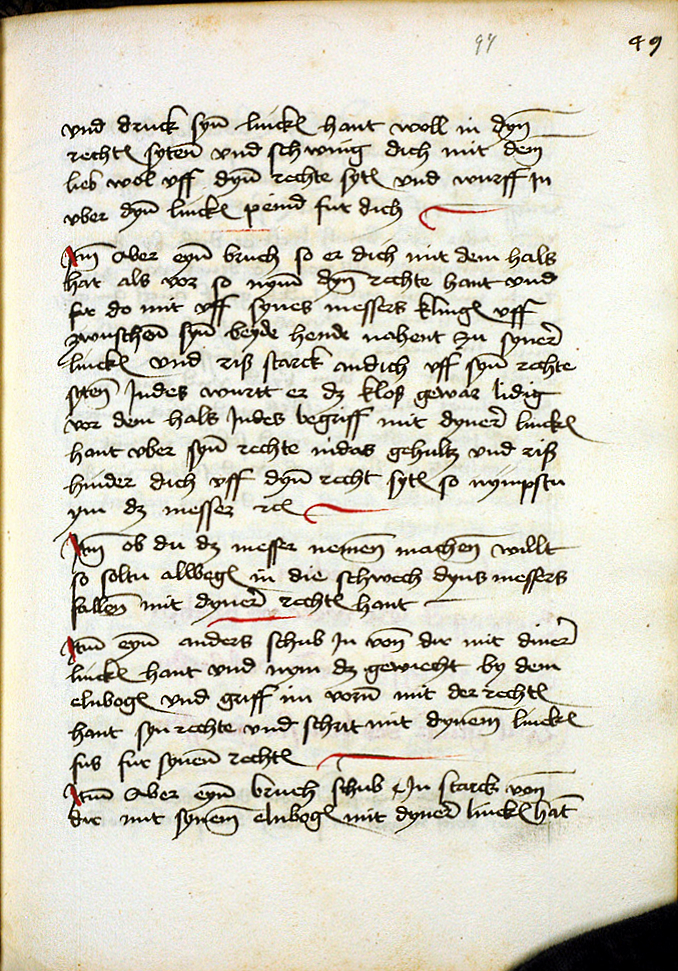 97 49
vnd druck syn̄ linckē hant woll in dyn̄
rechtē sytenn vnd schwing dich mit dem
lieb wol vff dyn̄ rechte sytē vnd wurff in
vber dyn̄ linckē fur dich
Itm̄ Aber eyn̄ bruch so er dich mit dem hals
hat als vor so nym̄ dyn̄ rechte hant vnd
far do mit vff synes messers klingē vff
zwuschenn syn̄ beyde hende nahent zu syner
linckē vnd riß starck an dich vff syn̄ rechte
sytēn Indes wurtt er dz kloß gewar lidig
vor dem hals Indes begriff mit dyner linckē
hant vber syn̄ rechte in das gehultz vnd riß
hinder dich vff dyn̄ recht sytē so nympstu
ym dz messer rcē
Itm̄ ob du dz messer nemen̄ machen̄ willt
so soltu allwegē in die schwech dyns messers
fallen̄ mit dyner rechtē hant
Itm̄ eyn̄ anders schub In von̄ dir mit diner
linckē hant vnd nym dz gewicht by dem
elnbogē vnd griff im vorn̄ mit der rechtē
hant syn rechte vnd schrit mit dynem̄ linckē
fus fur synen̄ rechtē
Itm̄ Aber eyn̄ bruch schub In starck von̄
dir mit synem̄ elnbogē mit dyner linckē hāt